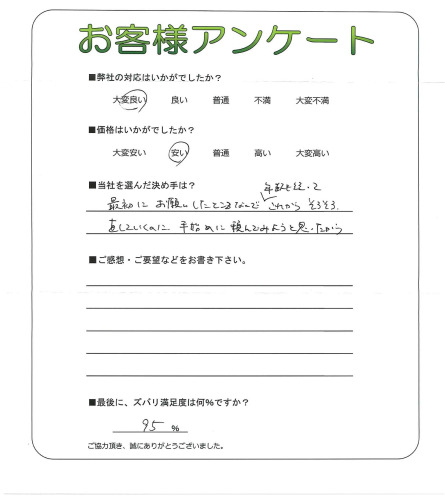 お客様アンケート
■弊社の対応はいかがでしたか？
大変良い 良い 普通 不満 大変不満
■価格はいかがでしたか？
大変安い 安い 普通 高い 大変高い
■当社を選んだ決め手は？
年数も経って
最初に お願いしたところなんで これから そろそろ
直していくのに 手始めに 頼んでみようと思ったから
■ご感想・ご要望などをお書き下さい。
■最後に、ズバリ満足度は何％ですか？
95 ％
ご協力頂き、誠にありがとうございました。